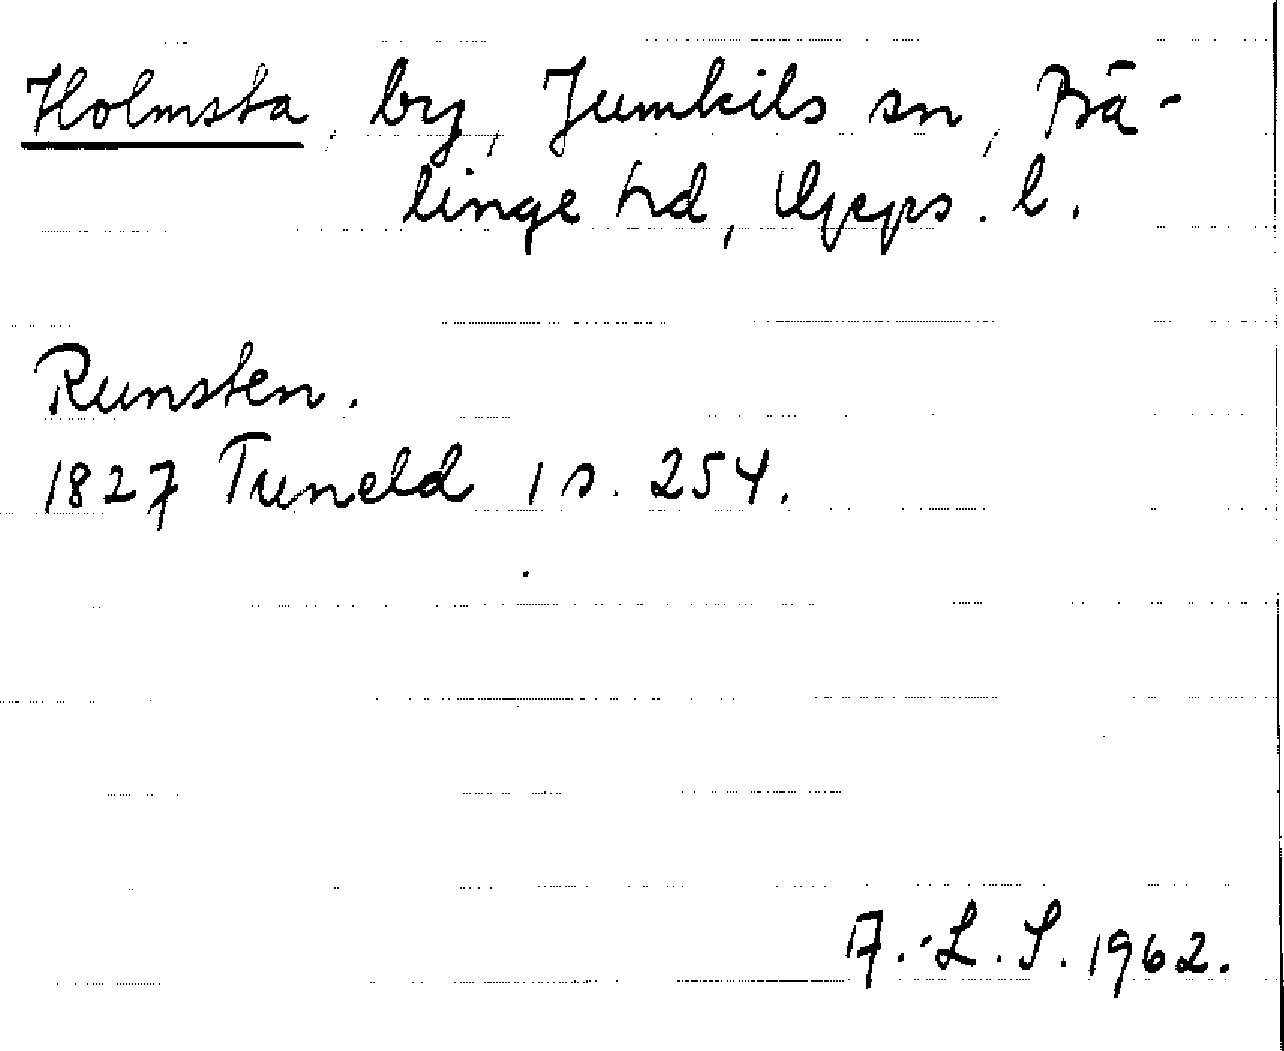 Holmsta, by, Jumkils sn, Bä-
linge hd, Upps. l.
Runsten.
1827 Tuneld 1 s. 254.
A.-L. S. 1962.